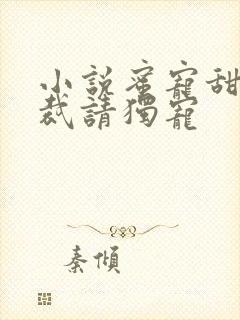 小說蜜寵甜
裁請獨寵
秦傾